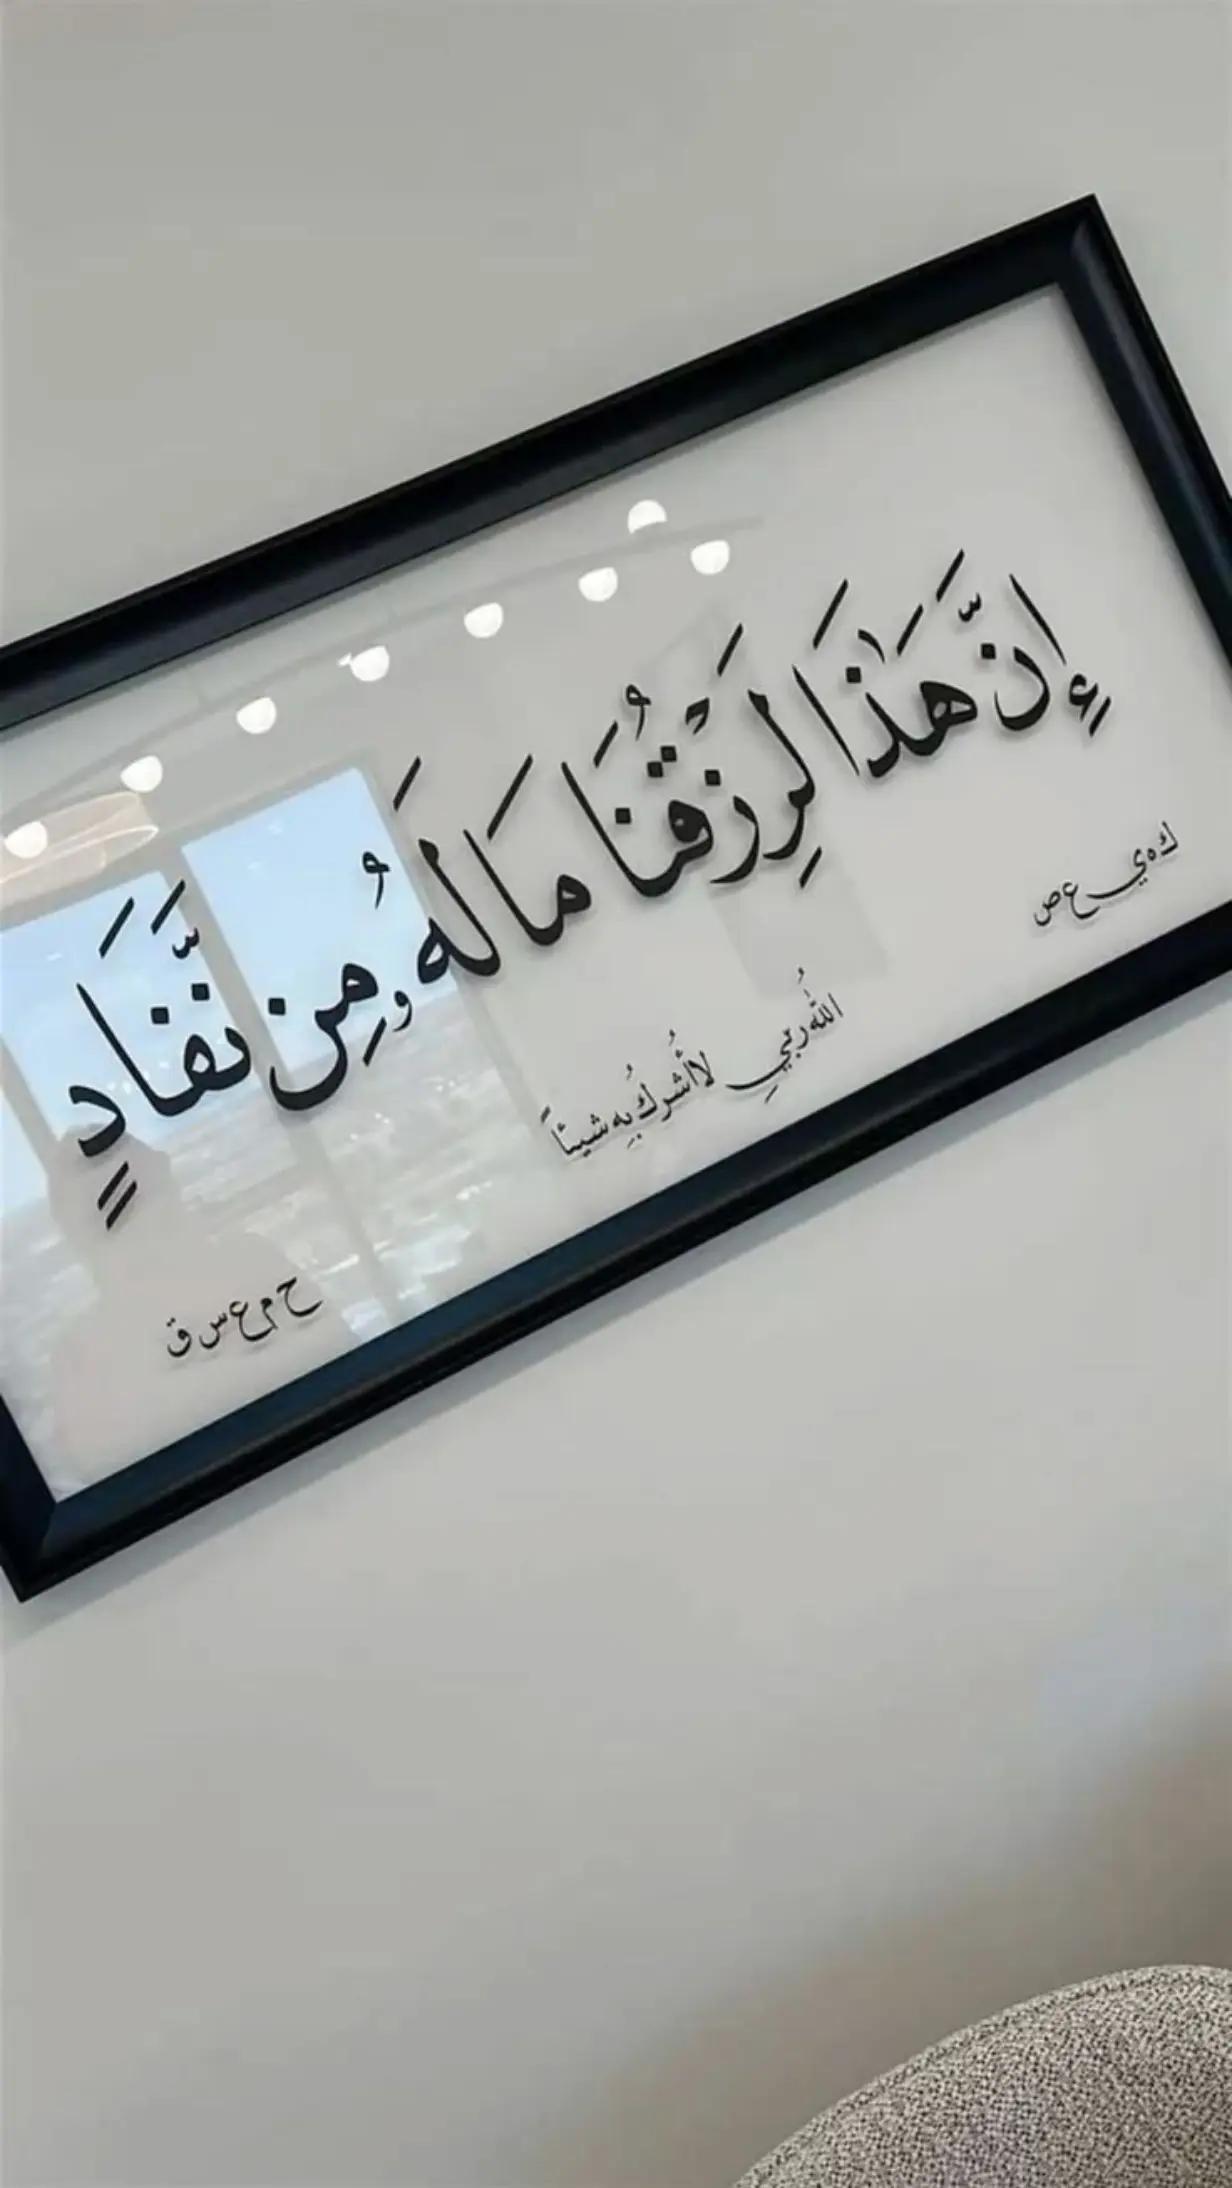 إِنَّ هَٰذَا لَرِزْقُنَا مَا لَهُۥ مِن نَّفَادٍ
ك ه ي ع ص
اللّٰهُ ربّي لا أُشركُ بِه شيئاً
ح م ع س ق